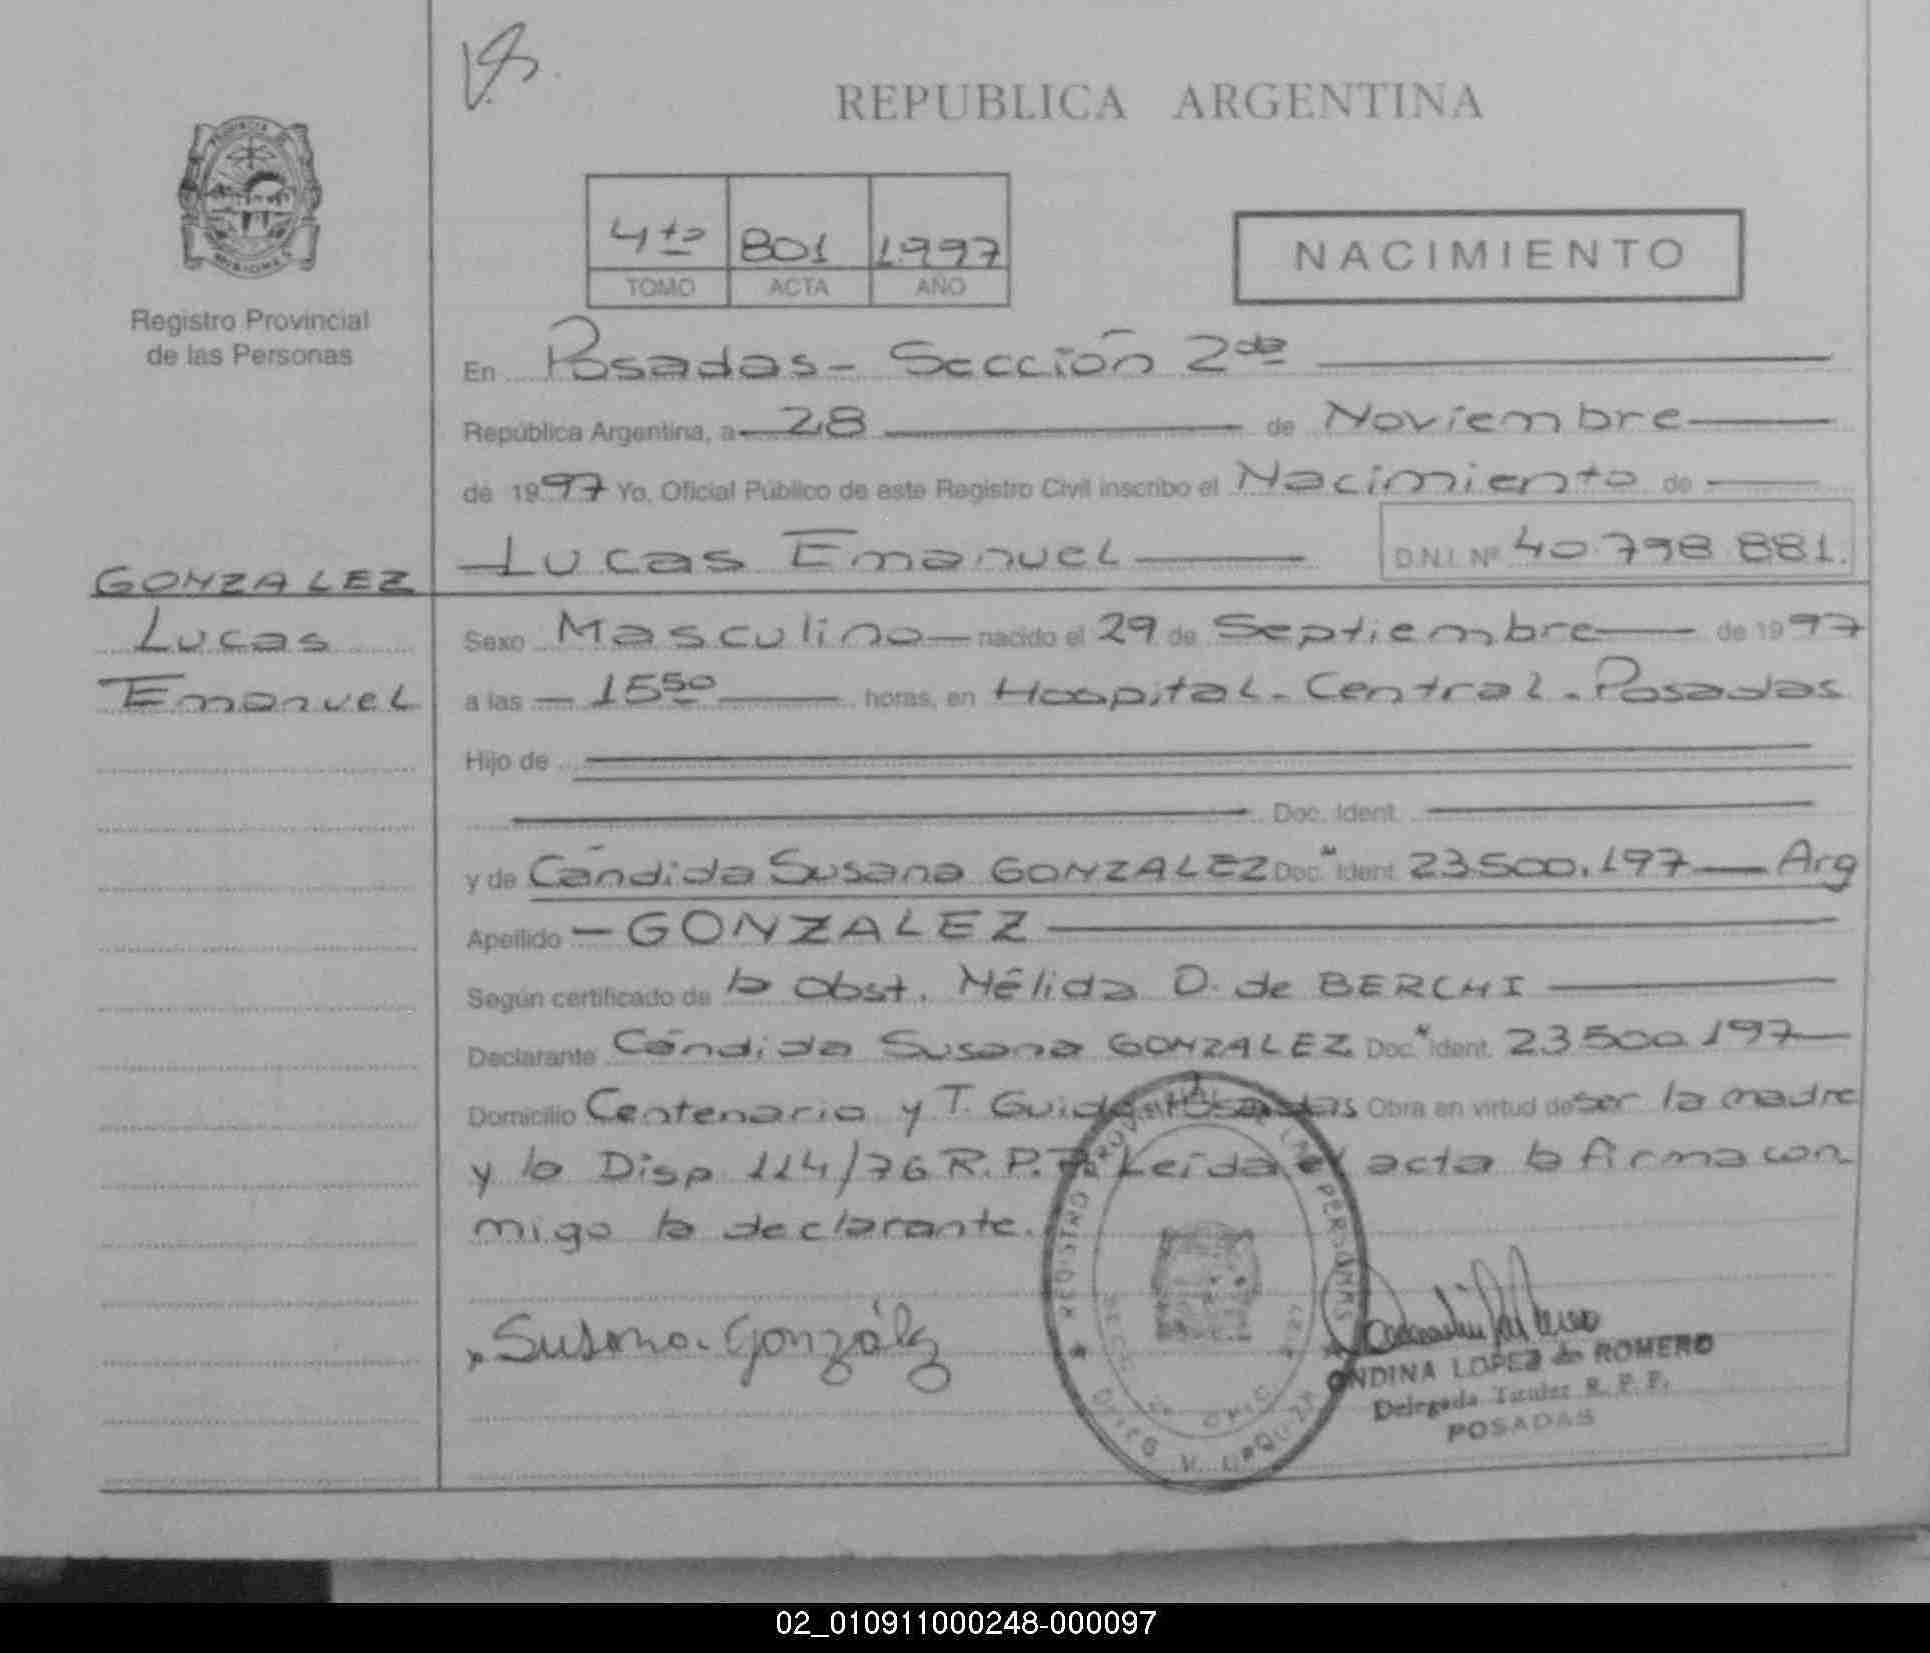 REPUBLICA ARGENTINA
PROVINCIA DE
MISIONES
Registro Provincial
de las Personas
4to 801 1997
TOMO ACTA AÑO
NACIMIENTO
En Posadas - Sección 2da
República Argentina, a 28 de Noviembre
de 1997 Yo, Oficial Público de este Registro Civil inscribo el Nacimiento de
Lucas Emanuel D.N.I. Nº 40.798.881.
GONZALEZ
Lucas
Emanuel
Sexo Masculino nacido el 29 de Septiembre de 1997
a las 15 50 horas, en Hospital - Central - Posadas
Hijo de
Doc. Ident.
y de Cándida Susana GONZALEZ Doc. Ident. 23.500.197 Arg
Apellido GONZALEZ
Según certificado de la Obst. Nélida D. de BERCHI
Declarante Cándida Susana GONZALEZ Doc. Ident. 23.500.197
Domicilio Centenario y T. Guido Posadas Obra en virtud de ser la madre
y la Disp 114/76 R.P.P. Leída el acta la firma con
migo la declarante.
Susana González
REGISTRO PROVINCIAL DE LAS PERSONAS
ONDINA LOPEZ de ROMERO
Delegada Titular R. P. P.
POSADAS
02_010911000248-000097